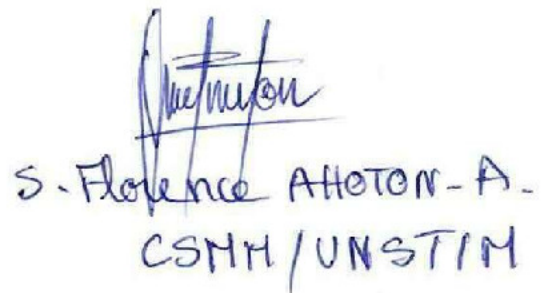 S. Florence AHOTON-A.
CSMM/UNSTIM